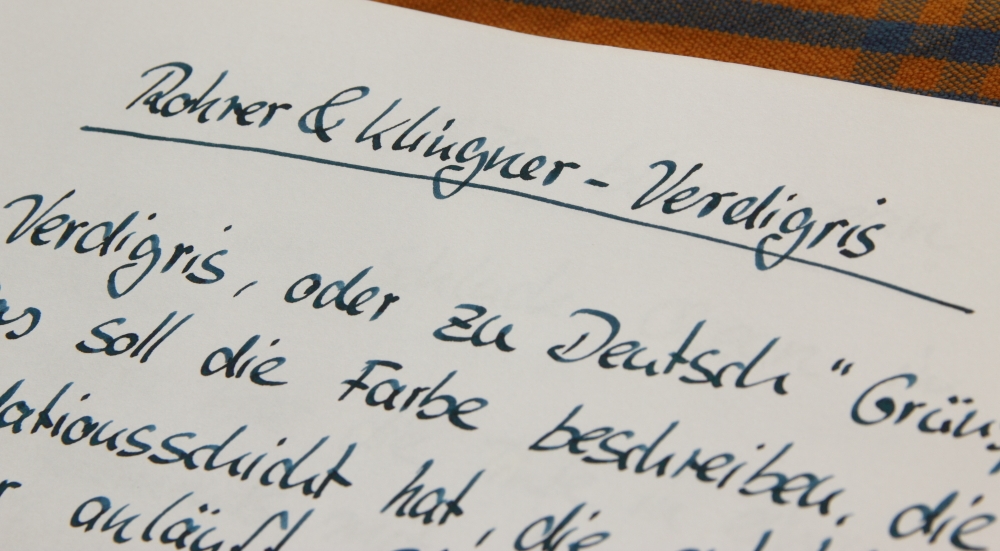 Rohrer & Klingner - Verdigris
Verdigris, oder zu Deutsch "Grüns
soll die Farbe beschreiben, die
dationsschicht hat, die
anläuft